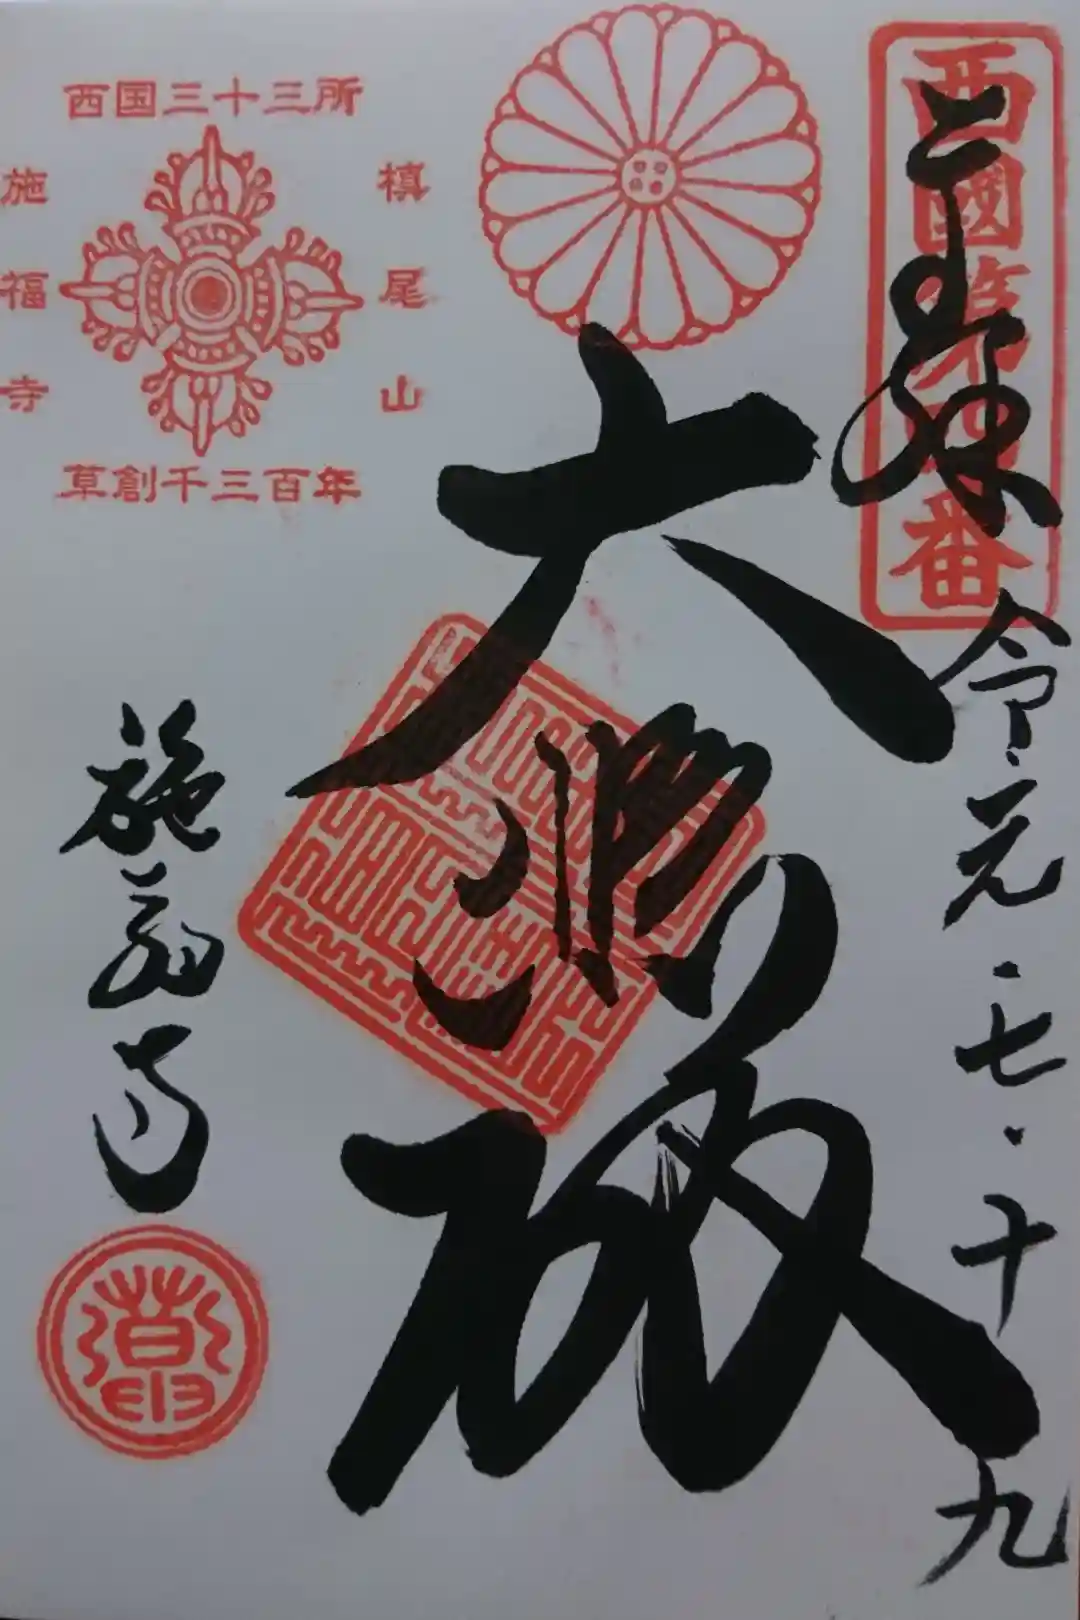 西國第四番
奉拝
令・元・七・十九
大悲殿
施福寺
西国三十三所
槙尾山
施福寺
草創千三百年